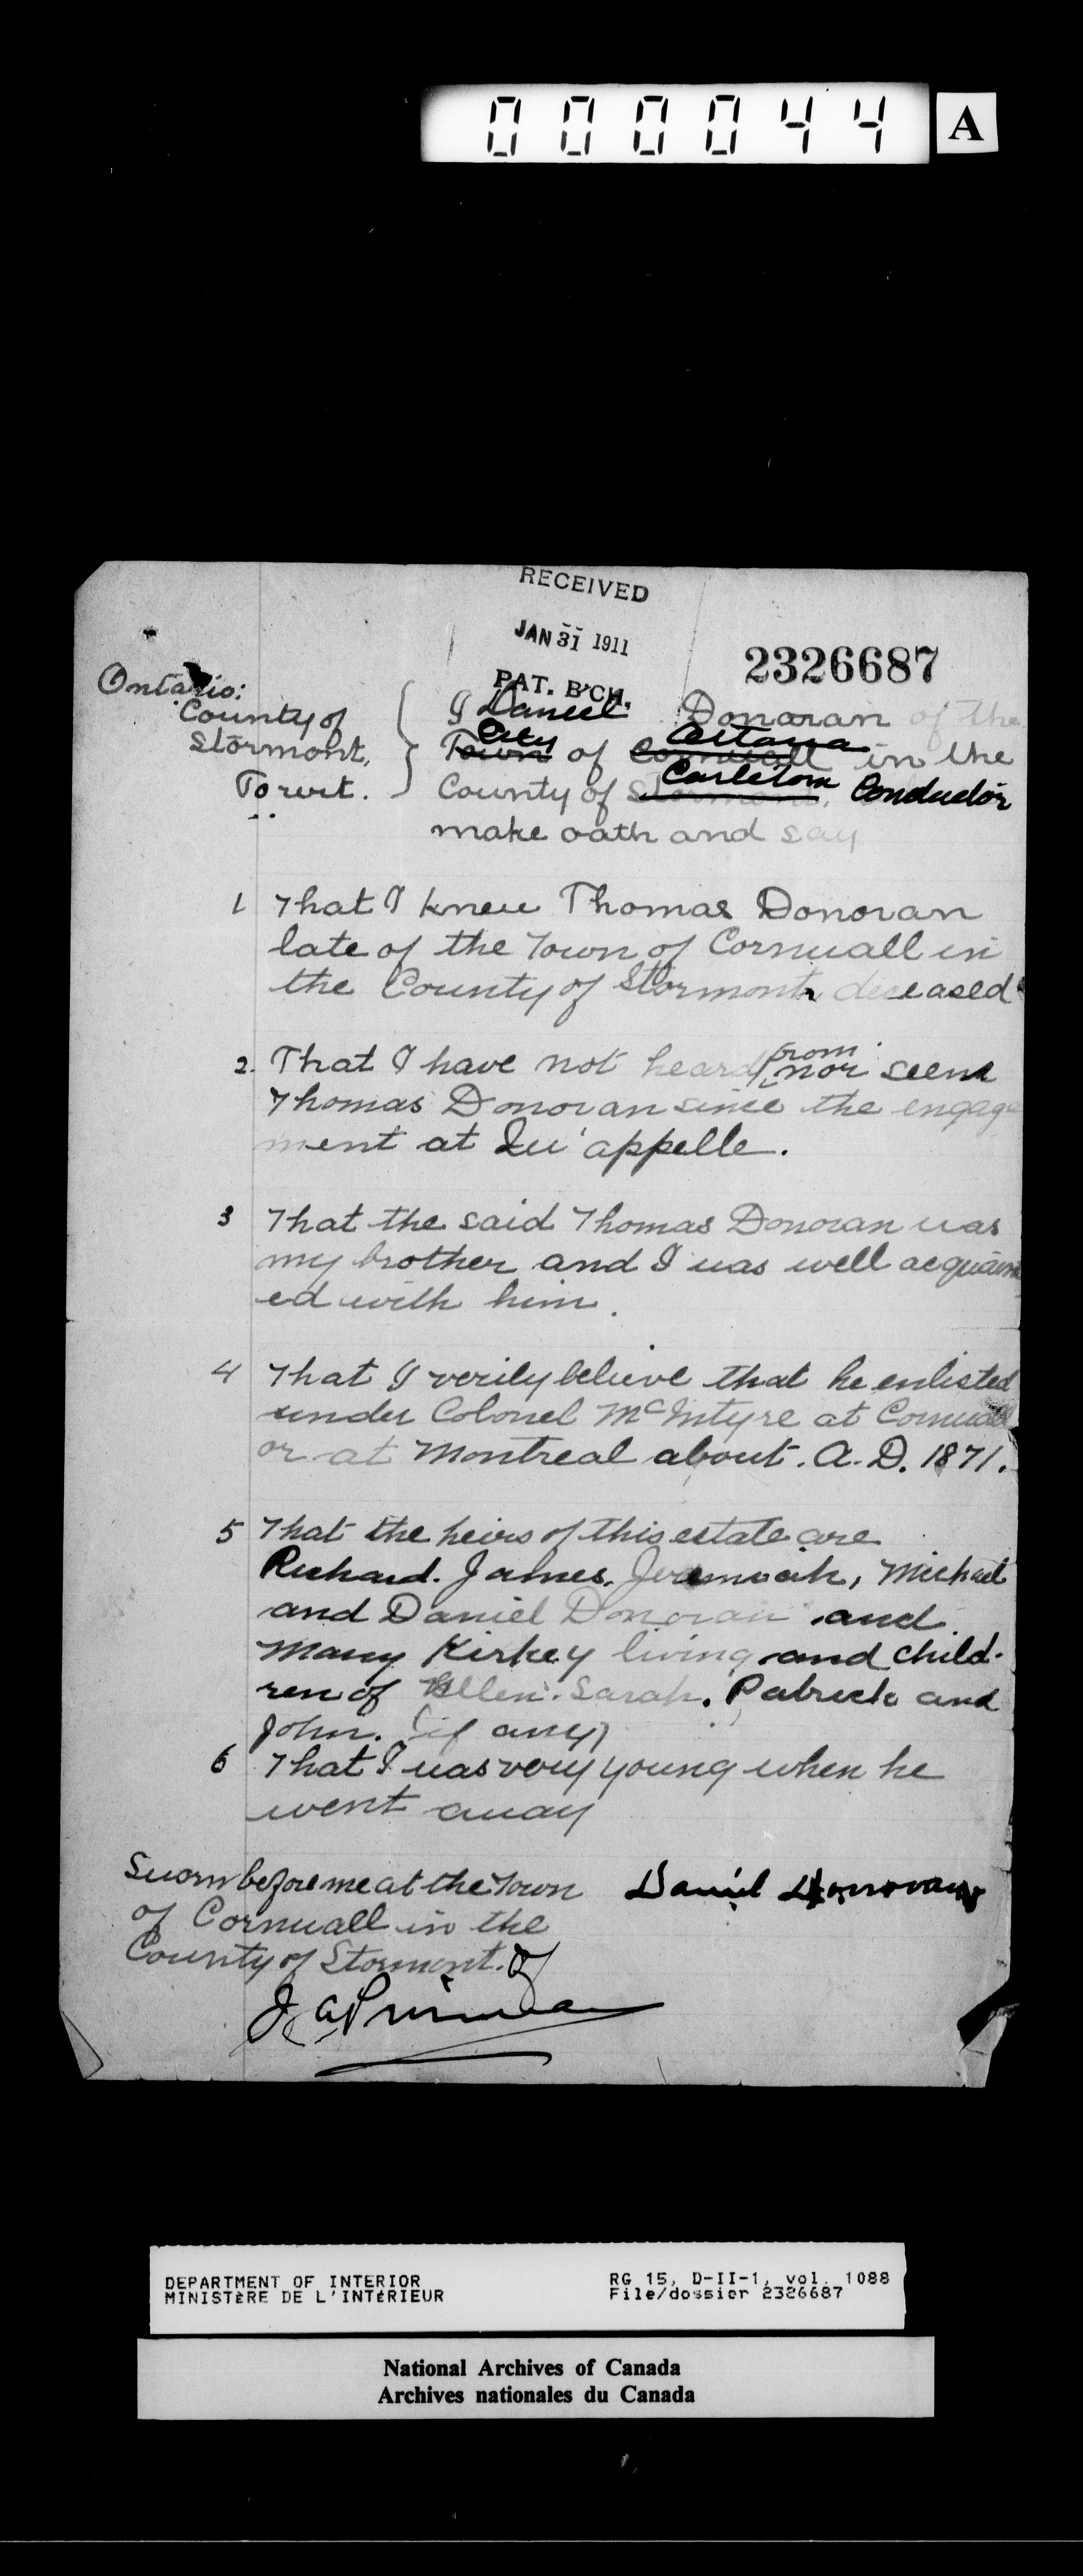 000044 A
RECEIVED
JAN 31 1911
PAT. B'CH.
2326687
Ontario:
County of
Stormont,
To wit.
I Daniel Donovan of the
City
Town of Cornwall Ottawa in the
County of Stormont, Carleton Conductor
make oath and say
1 That I knew Thomas Donovan
late of the Town of Cornwall in
the County of Stormont deceased
2. That I have not heard from nor seen
Thomas Donovan since the engage
ment at Qu'appelle.
3 That the said Thomas Donovan was
my brother and I was well acquaint
ed with him.
4 That I verily believe that he enlisted
under Colonel McIntyre at Cornwall
or at Montreal about. A.D. 1871.
5 That the heirs of this estate are
Richard. James. Jeremiah, Michael
and Daniel Donovan and
Mary Kirkey living and child-
ren of Ellen. Sarah. Patrick and
John. (if any)
6 That I was very young when he
went away
Sworn before me at the Town
of Cornwall in the
County of Stormont.
Daniel Donovan
DEPARTMENT OF INTERIOR
MINISTÈRE DE L'INTÉRIEUR
RG 15, D-II-1, vol. 1088
File/dossier 2326687
National Archives of Canada
Archives nationales du Canada